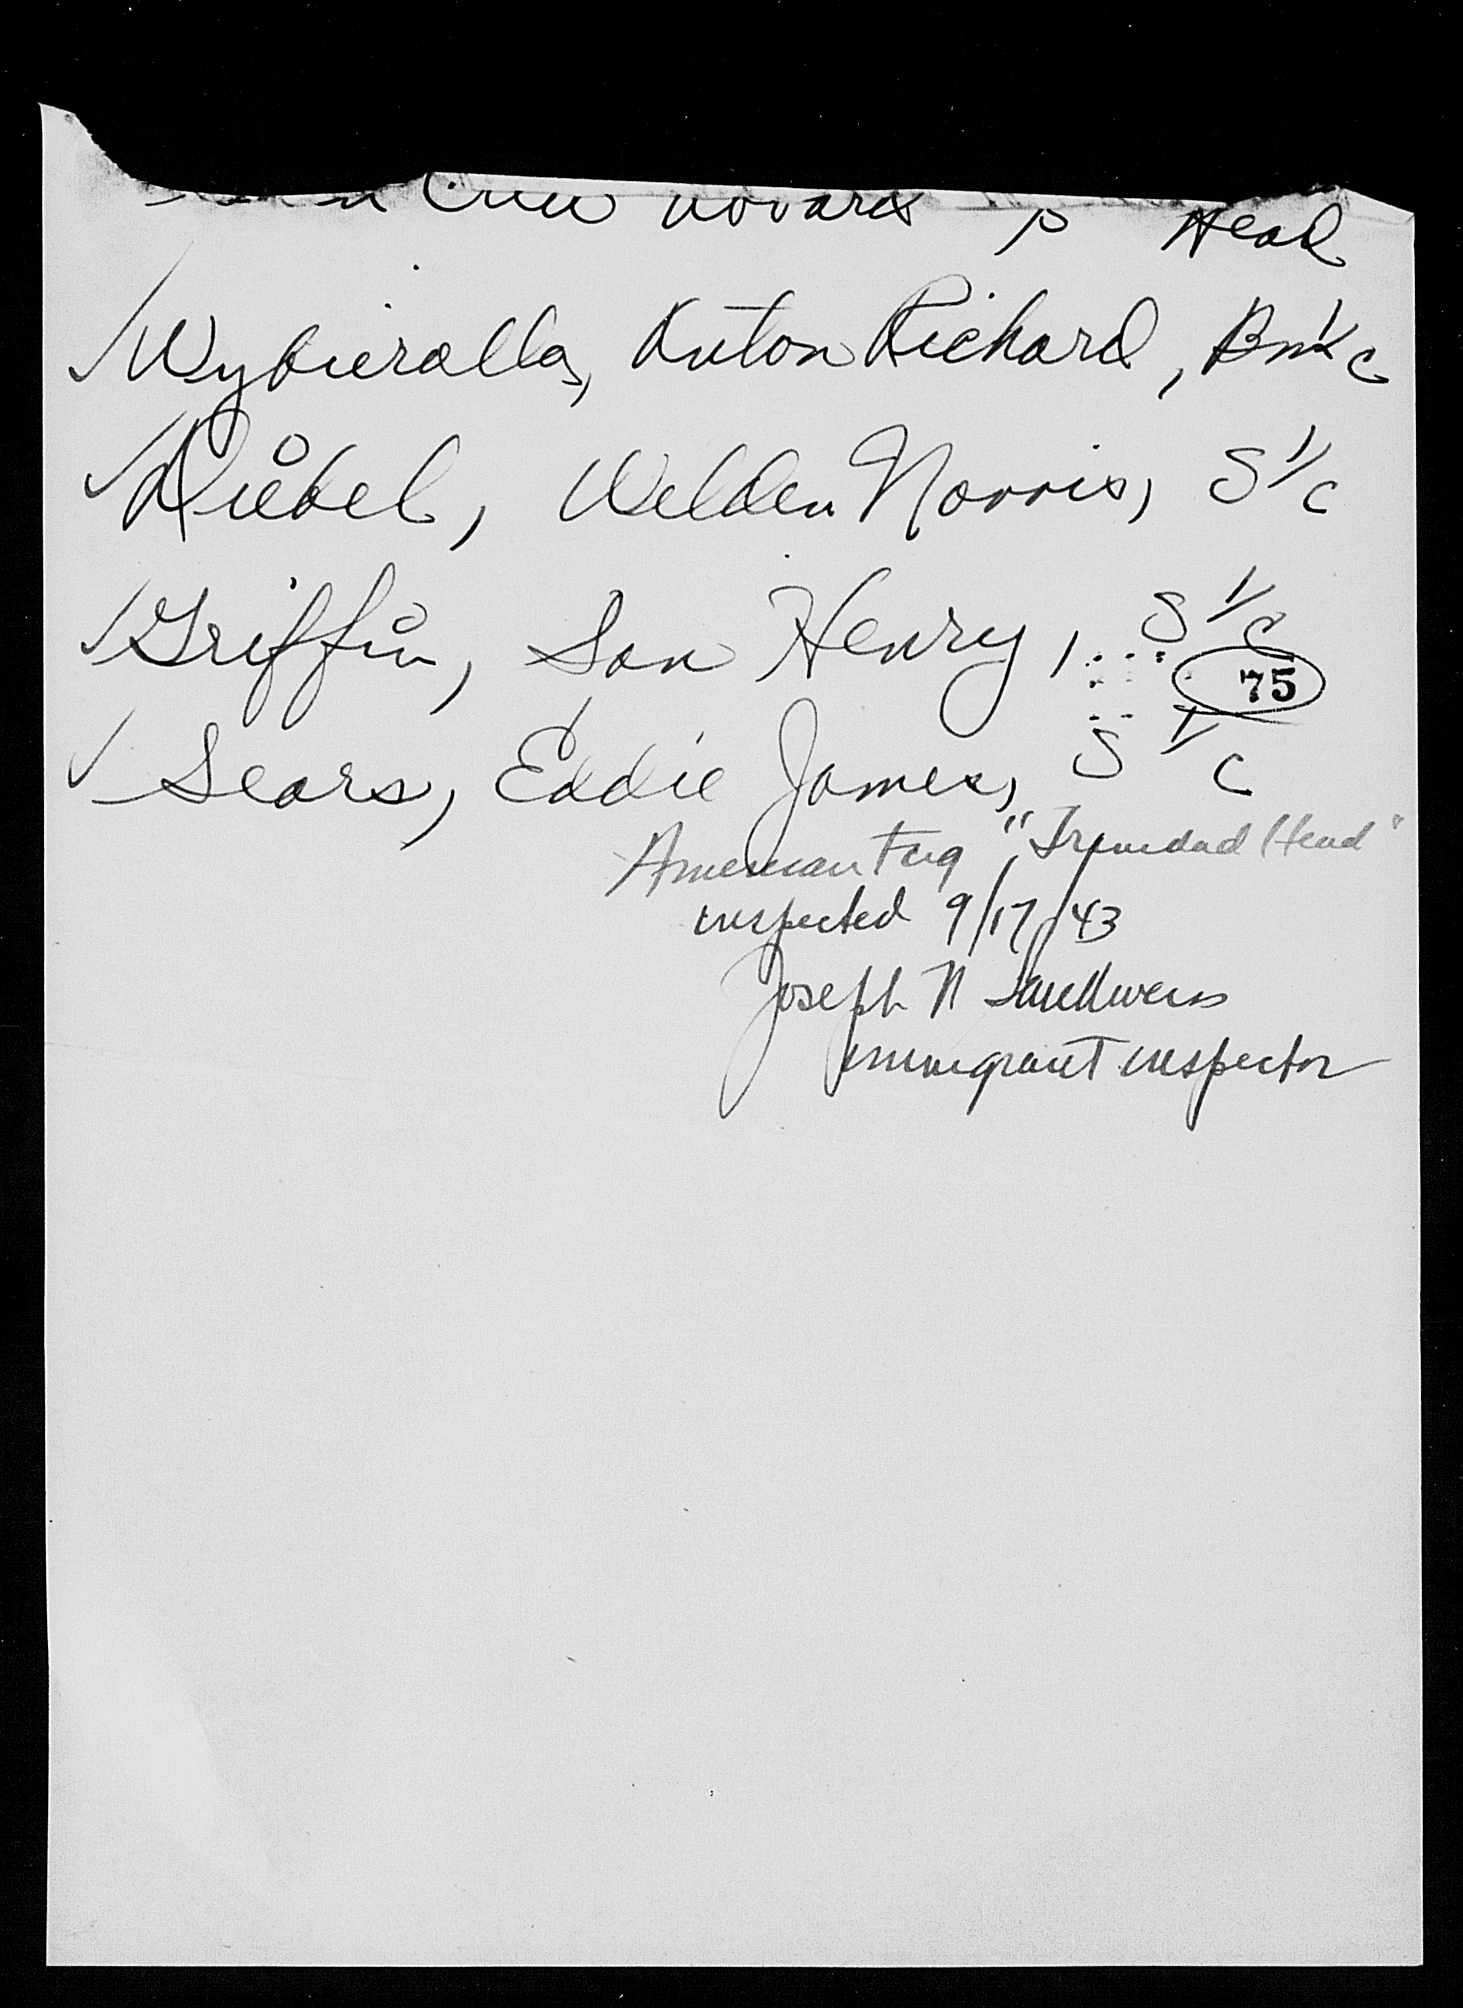 Crew aboard Head
✓ Wybieralla, Anton Richard, Bm 1/c
✓ Diebel, Welden Norris, S 1/c
✓ Griffin, Son Henry, S 1/c
75
✓ Sears, Eddie James, S 1/c
American Tug "Trinidad Head"
inspected 9/17/43
Joseph N
Immigrant Inspector